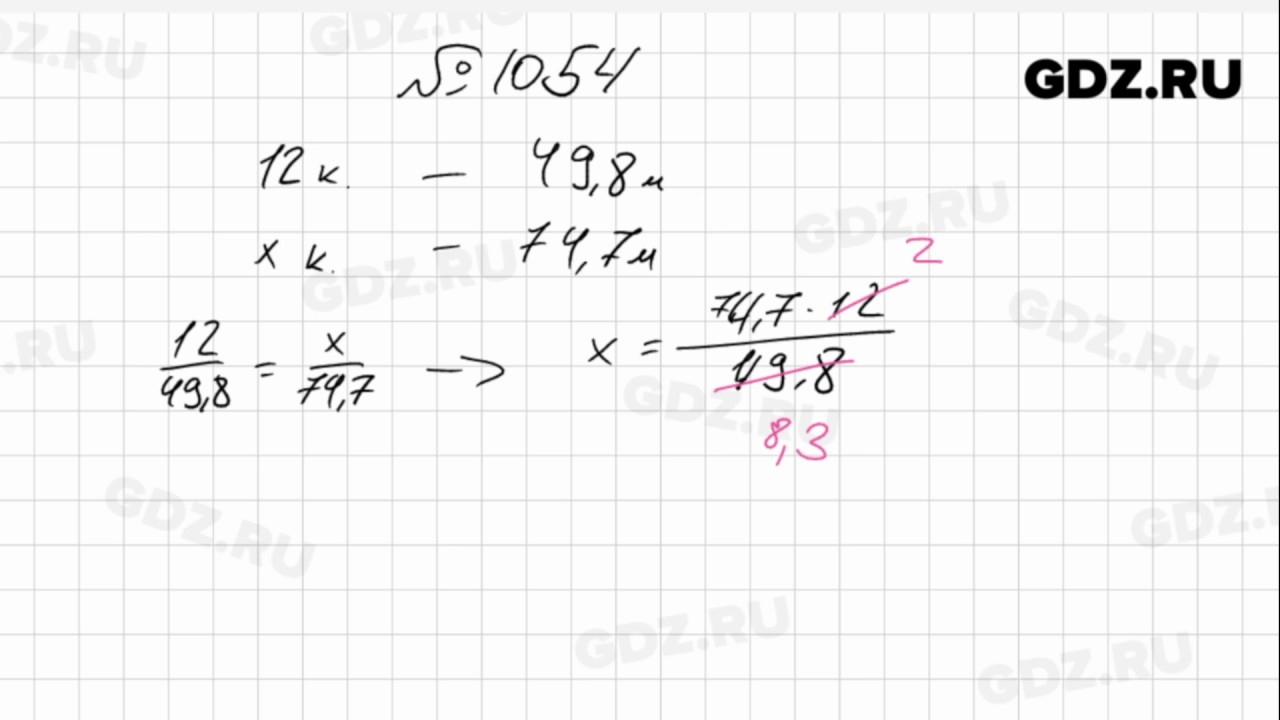 GDZ.RU
№1054
12 к. — 49,8 м
x к. — 74,7 м
12/49,8 = x/74,7 → x = 74,7 · 12/49,8
2
8,3
GDZ.RU
GDZ.RU
GDZ.RU
GDZ.RU
GDZ.RU
GDZ.RU
GDZ.RU
GDZ.RU
GDZ.RU
GDZ.RU